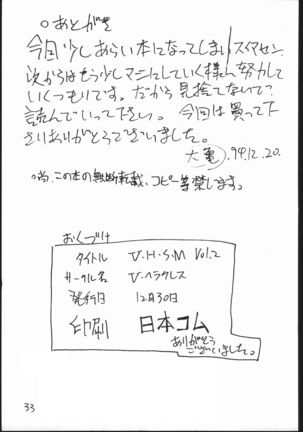 ○あとがき
今回少しあらい本になってしまいスイマセン
次からはもう少しマニにしていく様、努力して
いくつもりです。だから見捨てないで?
読んでいって下さい。今回は買って下
さりありがとうございました。
'94.12.20.
尚、この本の無断転載、コピー等禁じます。
おくづけ
タイトル V・H・S・M Vol.2
サークル名 V・ヘラクレス
発行日 12月30日
印刷 日本コム
ありがとう
ございました。
33